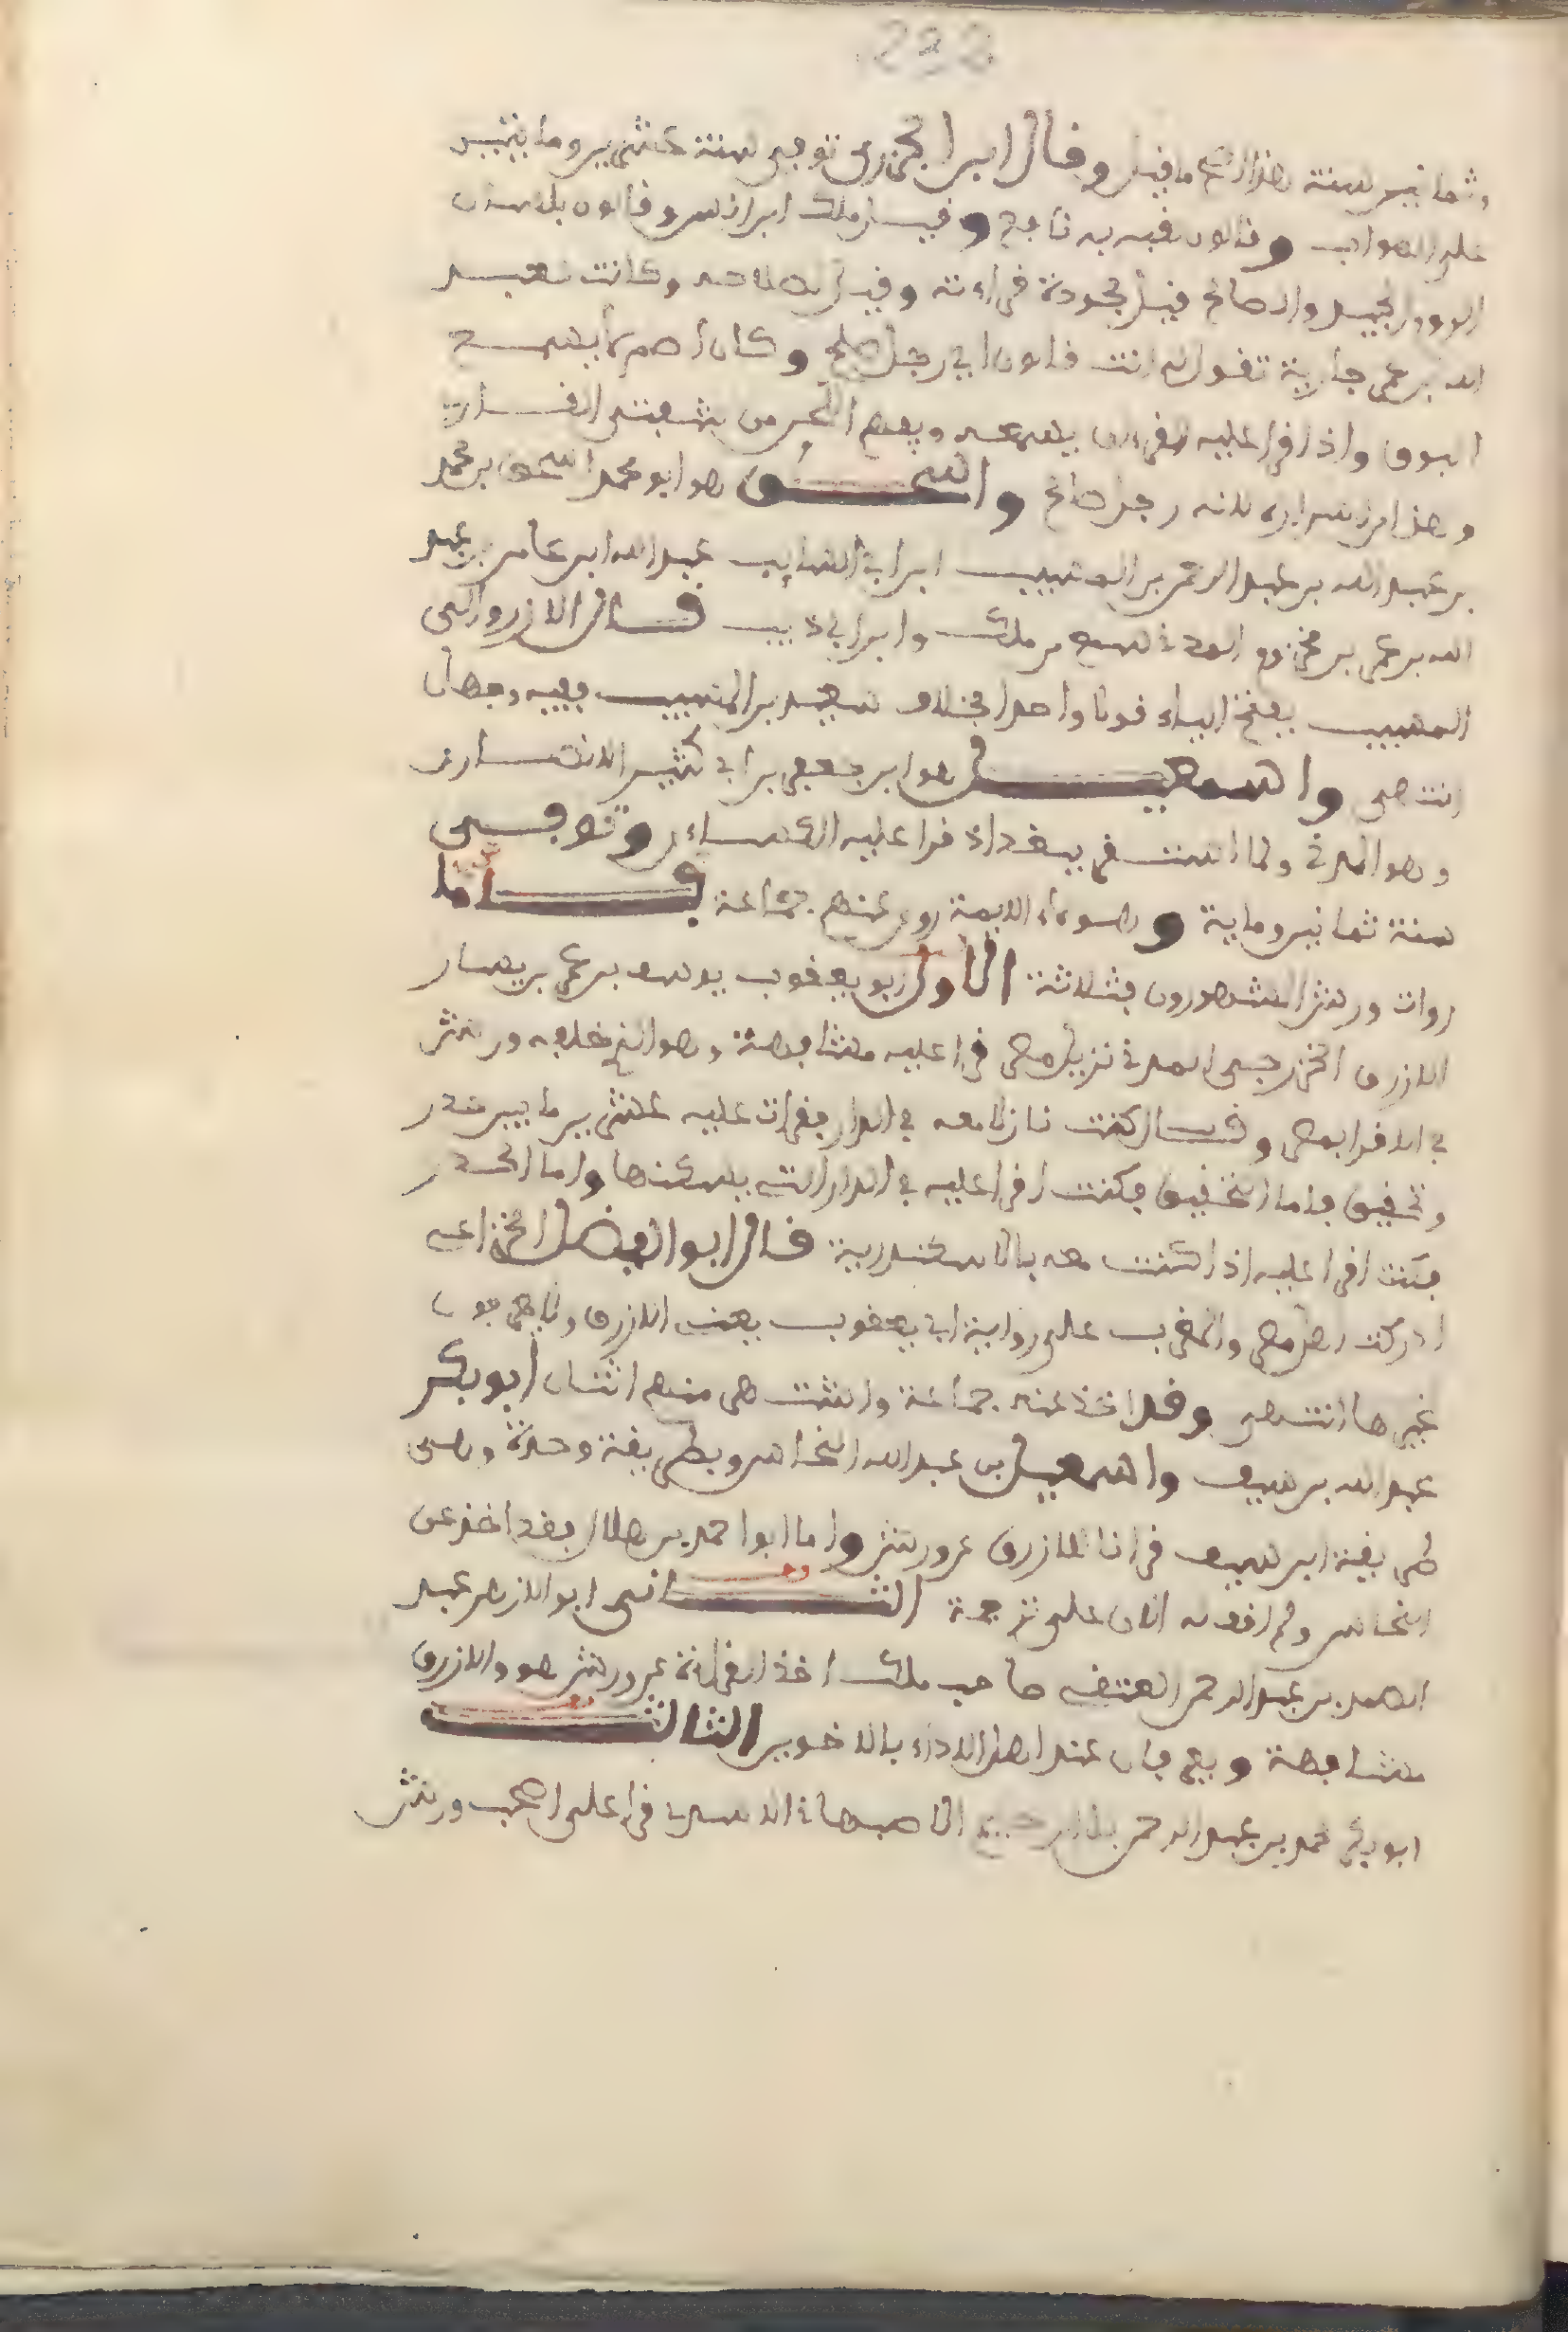 222
وثمانين سنة هذا اصح ما فيل وفال ابن الجزرى توفي سنة عشرين وماينتين
على الصواب وفالون لفبه به نافع وفيل ملك ابن انس وفالون بلسان
الروم الجيد والصالح فيل لجودة فراءته وفيل لصلاحه وكانت لعبد
الله بن عمر جارية تفول له انت فالون اي رجل صلح وكان اصم لا يسمع
البوق واذا فرا عليه الفرءان يسمعه ويفهم اللحن من شفتي الفارئ
وهذا من اسراره لانه رجل صالح واسحق هو ابو محمد اسحق بن محمد
بن عبد الله بن عبد الرحمن بن المسيب ابن ابي السايب عبد الله ابن عامر بن عبد
الله بن عمر بن مخزوم المدني سمع من ملك وابن ابي ذيب فال الازروالي
المسيب بفتح الياء فولا واحدا بخلاف سعيد بن المسيب ففيه وجهان
انتهى واسمعيل هو ابن جعفر بن ابي كثير الانصارى
وهو المدني ولما استفر ببغداد فرا عليه الكساءى وتوفى
سنة ثمانين وماية وهوءلاء الايمة روى عنهم جماعة فاما
روات ورش المشهورون فثلاثة الاول ابو يعفوب يوسف بن عمر بن يسار
الازرق الخزرجى المدني نزيل مصر فرا عليه مشافهة وهو الذي خلفه ورش
في الافرا بمصر وفال كنت نازلا معه في الدار ففرات عليه عشرين ما بين حدر
وتحفيق فاما التحفيق فكنت افرا عليه في الدار التي يسكنها واما الحدر
فكنت افرا عليه اذا كنت معه بالاسكندرية فال ابو الفضل الخزاعي
ادركت اهل مصر والمغرب على رواية ابي يعفوب يعني الازرق ولا يعرفون
غيرها انتهى وفد اخذ عنه جماعة واشتهر منهم اثنان ابو بكر
عبد الله بن سيف واسمعيل بن عبد الله النحاس وبطريفة وحدة وهى
طريفة ابن سيف فرانا للازرق عن ورش واما ابو احمد بن هلال ففد اخذ عن
النحاس ولم افف له الان على ترجمة الثانى ابو الازهر عبد
الصمد بن عبد الرحمن العتفي صاحب ملك اخذ الفراءة عن ورش هو والازرق
مشافهة ويعرفان عند اهل الاداء بالاخوين الثالث
ابو بكر محمد بن عبد الرحمن بن الرحيم الاصبهاني الاسدي فرا على اصحب ورش